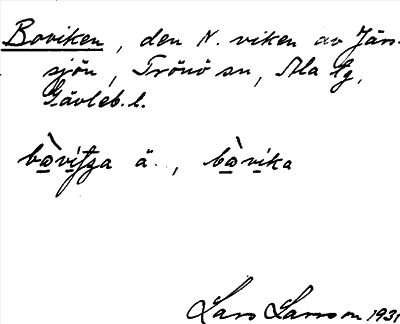 Boviken, den N. viken av Järs-
sjön, Trönö sn, Ala tg,
Gävleb. l.
bòvitʃa ä., bòvika
Lars Larsson 1931